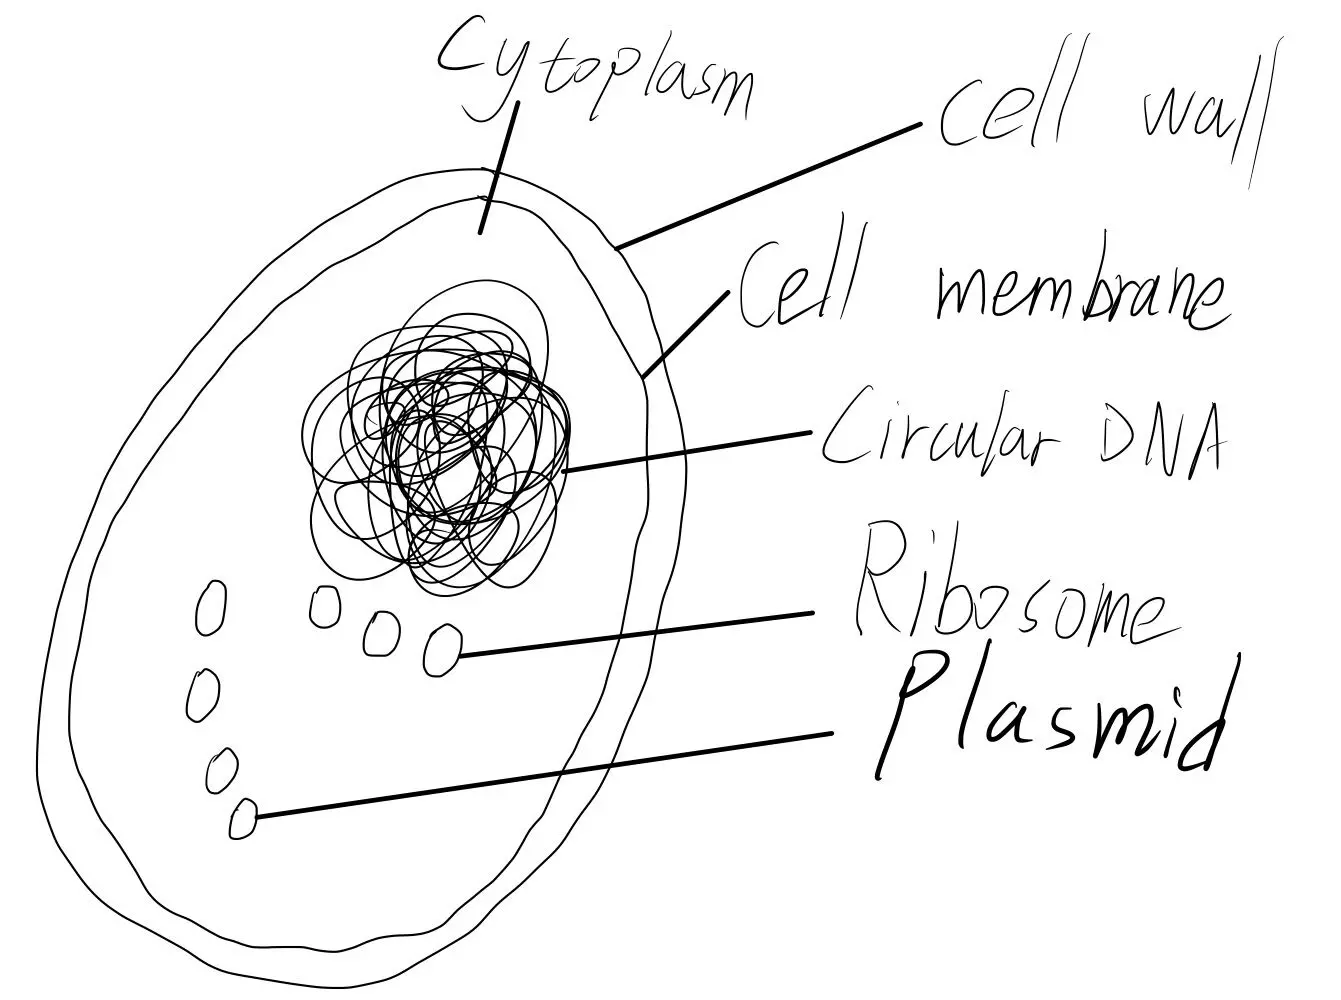 Cytoplasm
Cell wall
Cell membrane
Circular DNA
Ribosome
Plasmid